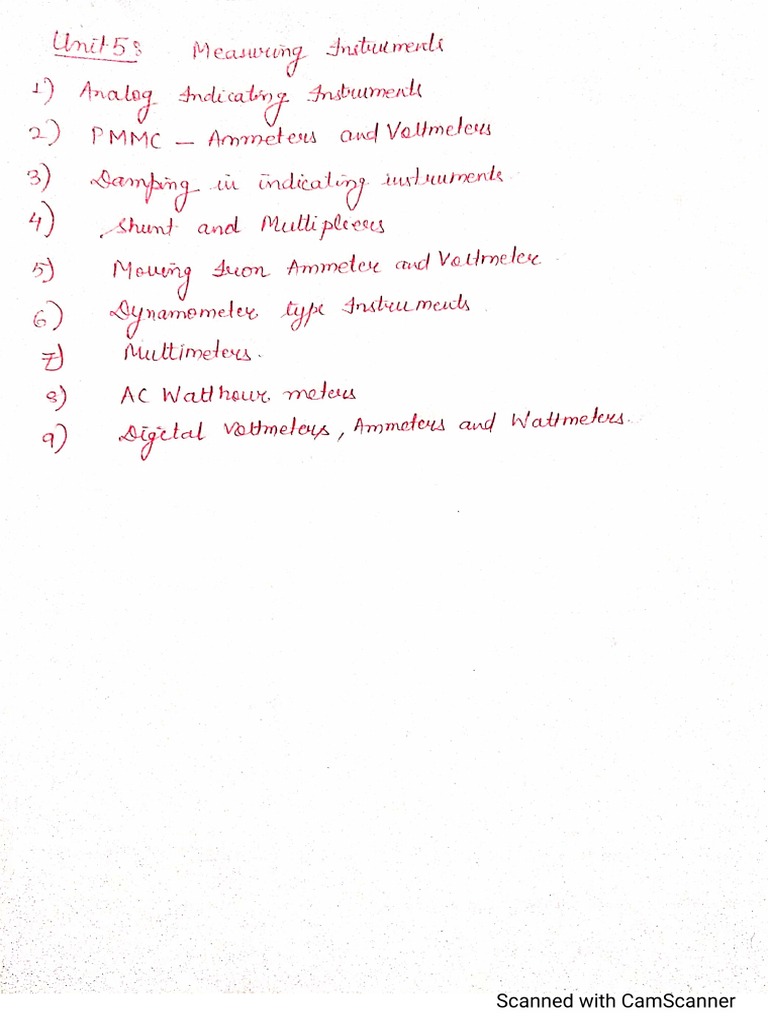 Unit 5: Measuring Instruments
1) Analog Indicating Instruments
2) PMMC – Ammeters and Voltmeters
3) Damping in indicating instruments
4) Shunt and Multipliers
5) Moving Iron Ammeter and Voltmeter
6) Dynamometer type Instruments
7) Multimeters.
8) AC Watthour meters
9) Digital Voltmeters, Ammeters and Wattmeters.
Scanned with CamScanner